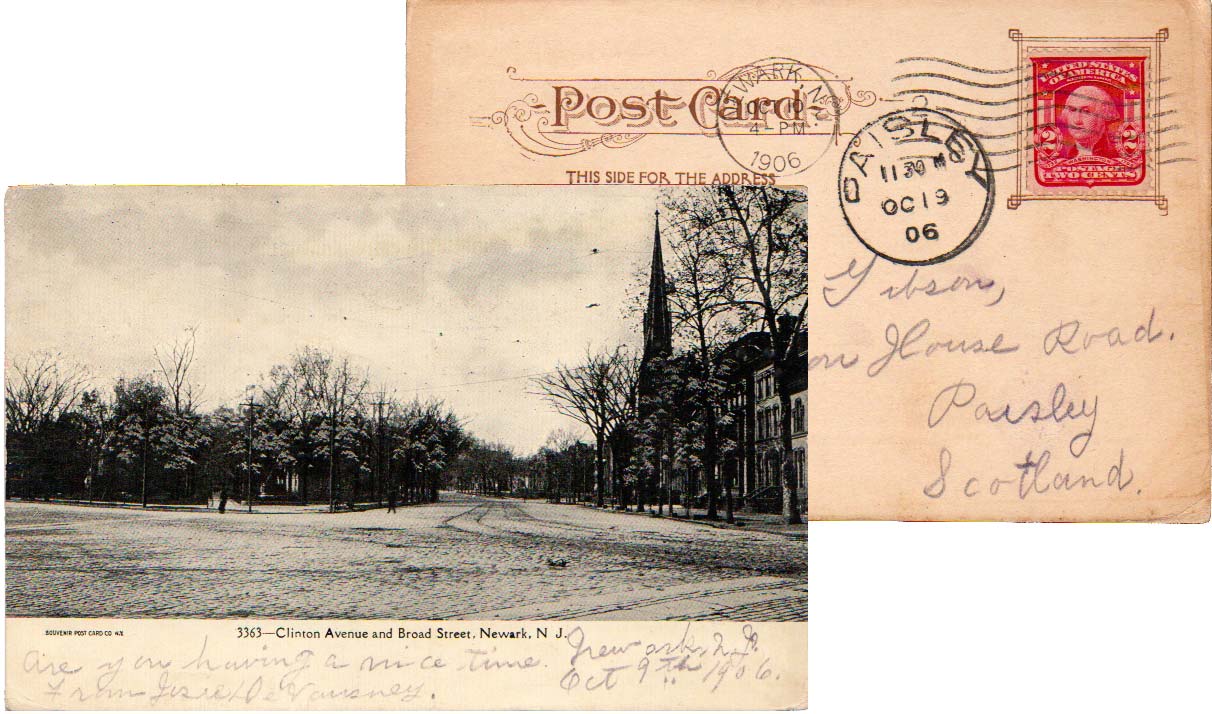 Post Card
THIS SIDE FOR THE ADDRESS
NEWARK, N.J.
OCT 10
4-PM
1906
PAISLEY
11 30 M
OC 19
06
UNITED STATES
OF AMERICA
2 2
WASHINGTON
POSTAGE
TWO CENTS
Gibson,
on House Road.
Paisley
Scotland.
SOUVENIR POST CARD CO N.Y.
3363—Clinton Avenue and Broad Street, Newark, N J.
Are you having a nice time. Newark, N.J.
From Josie Oct 9th 1906.